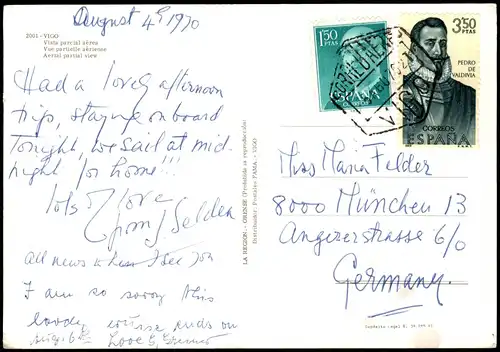 August 4th 1970
2001 - VIGO
Vista parcial aérea
Vue partielle aérienne
Aerial partial view
Had a lovely afternoon
trip, staying on board
Tonight, we sail at mid-
night for home!!!
lots of love
from J Selden
all news when I see you
I am so sorry this
lovely cruise ends on
Aug. 6th Love
LA REGION. - ORENSE (Prohibida la reproducción)
Distribuidor: Postales FAMA. - VIGO
1'50
PTAS
ESPAÑA
CORREOS
3'50
PTAS
PEDRO
DE
VALDIVIA
CORREOS
ESPAÑA
VIGO
Miss Maria Felder
8000 München 13
Angererstrasse 6/0
Germany